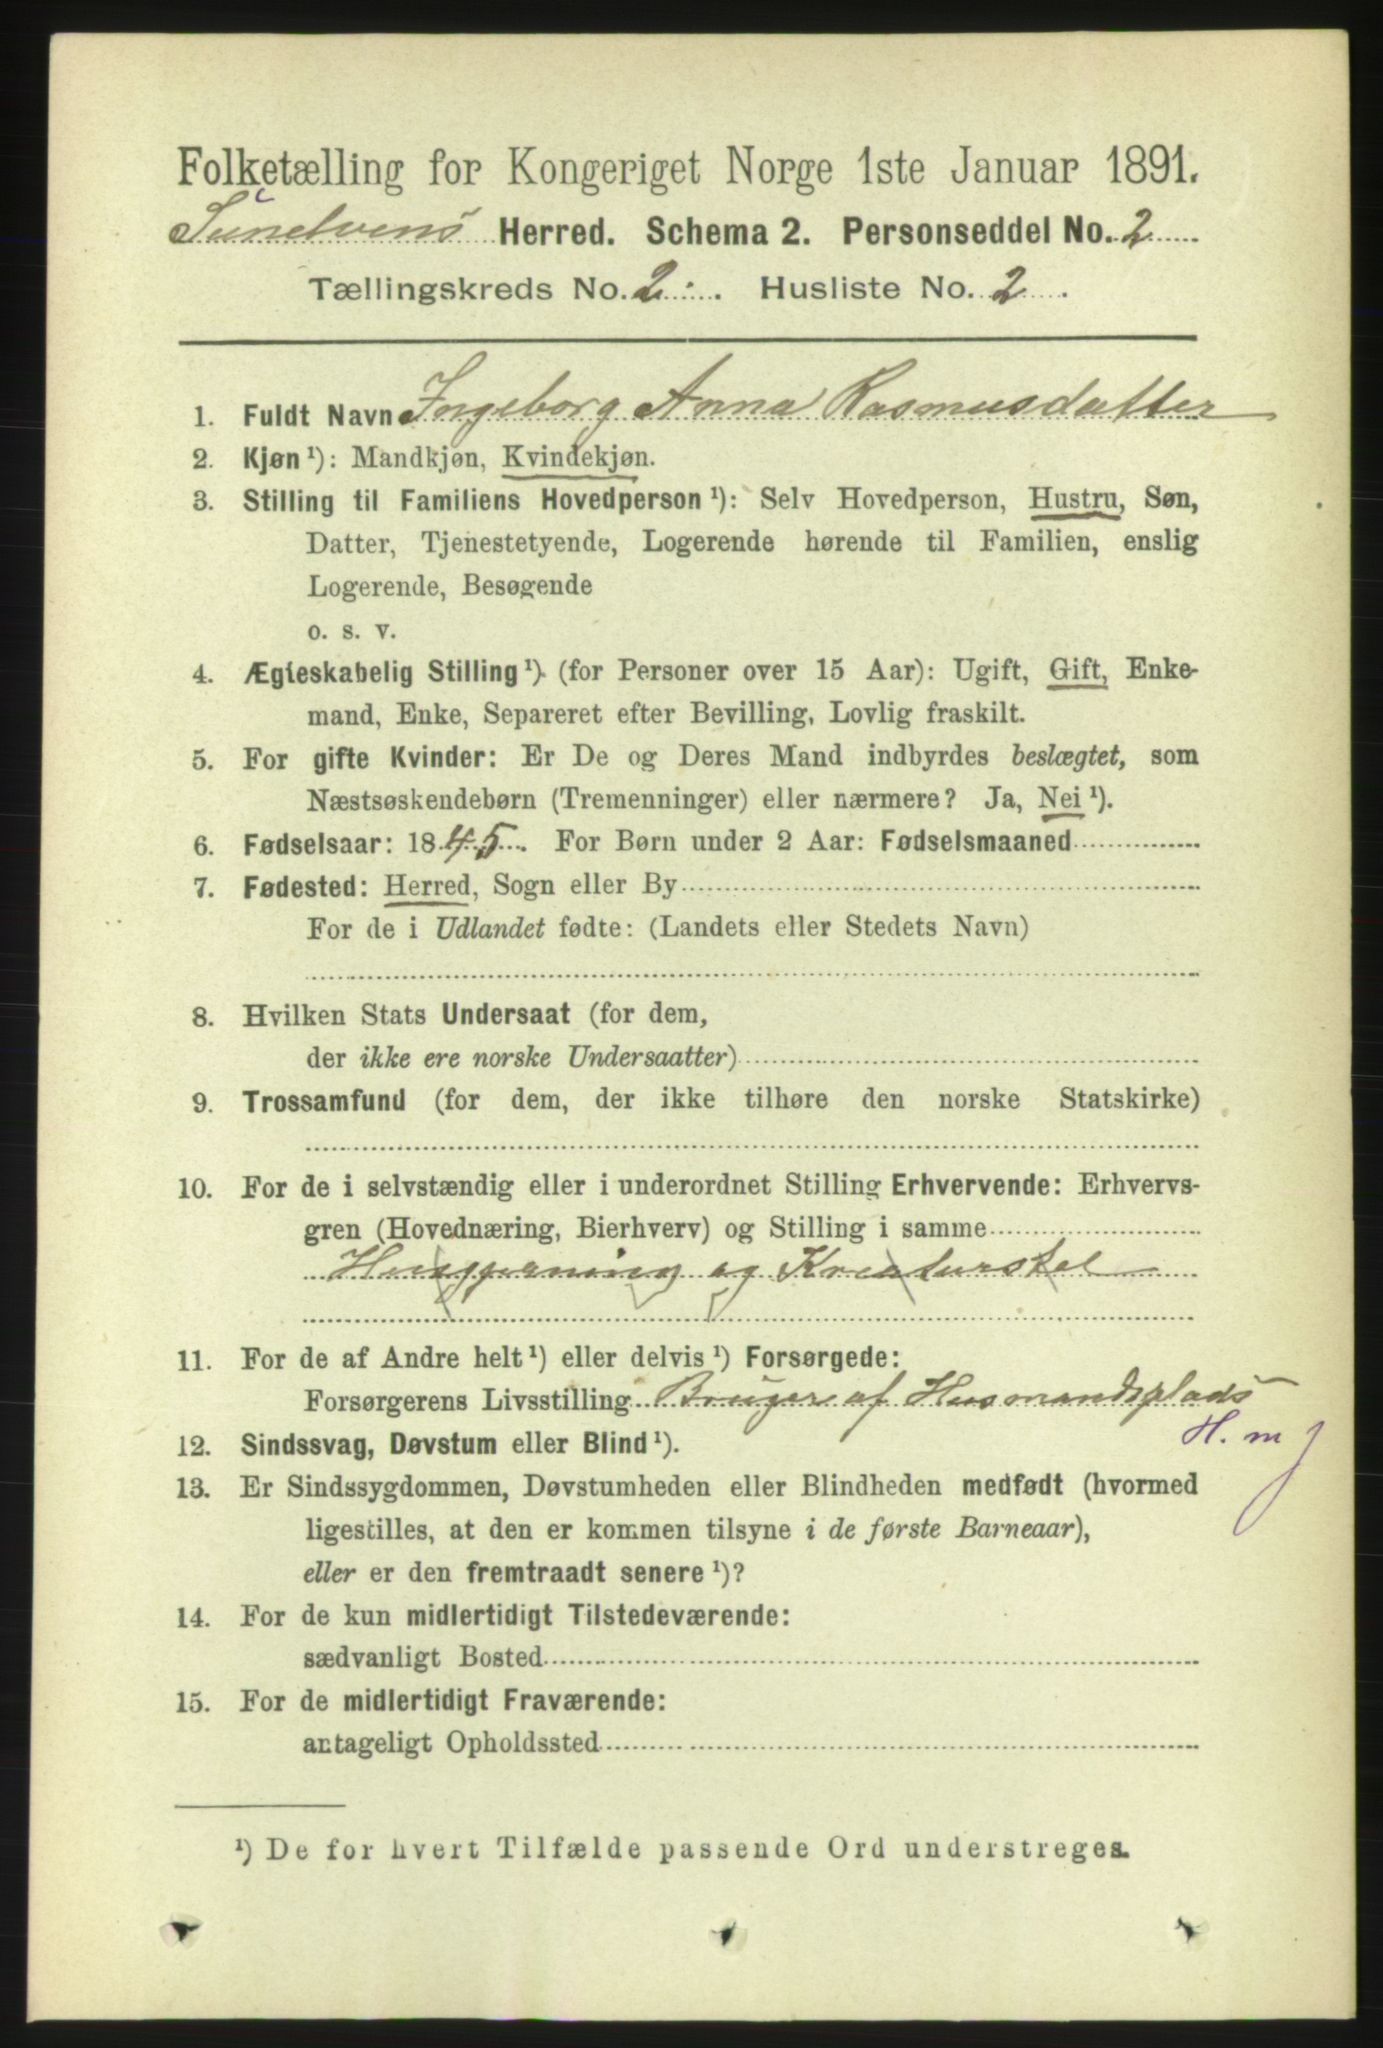 Folketælling for Kongeriget Norge 1ste Januar 1891.
Sunelvens Herred. Schema 2. Personseddel No. 2
Tællingskreds No. 2. Husliste No. 2.
1. Fuldt Navn Ingeborg Anna Rasmusdatter
2. Kjøn¹): Mandkjøn, Kvindekjøn.
3. Stilling til Familiens Hovedperson¹): Selv Hovedperson, Hustru, Søn,
Datter, Tjenestetyende, Logerende hørende til Familien, enslig
Logerende, Besøgende
o. s. v.
4. Ægteskabelig Stilling¹) (for Personer over 15 Aar): Ugift, Gift, Enke-
mand, Enke, Separeret efter Bevilling, Lovlig fraskilt.
5. For gifte Kvinder: Er De og Deres Mand indbyrdes beslægtet, som
Næstsøskendebørn (Tremenninger) eller nærmere? Ja, Nei¹).
6. Fødselsaar: 1845. For Børn under 2 Aar: Fødselsmaaned
7. Fødested: Herred, Sogn eller By
For de i Udlandet fødte: (Landets eller Stedets Navn)
8. Hvilken Stats Undersaat (for dem,
der ikke ere norske Undersaatter)
9. Trossamfund (for dem, der ikke tilhøre den norske Statskirke)
10. For de i selvstændig eller i underordnet Stilling Erhvervende: Erhvervs-
gren (Hovednæring, Bierhverv) og Stilling i samme
og Kreaturstel
11. For de af Andre helt¹) eller delvis¹) Forsørgede:
Forsørgerens Livsstilling Bruger af Husmandsplads
H. m j
12. Sindssvag, Døvstum eller Blind¹).
13. Er Sindssygdommen, Døvstumheden eller Blindheden medfødt (hvormed
ligestilles, at den er kommen tilsyne i de første Barneaar),
eller er den fremtraadt senere¹)?
14. For de kun midlertidigt Tilstedeværende:
sædvanligt Bosted
15. For de midlertidigt Fraværende:
antageligt Opholdssted
¹) De for hvert Tilfælde passende Ord understreges.